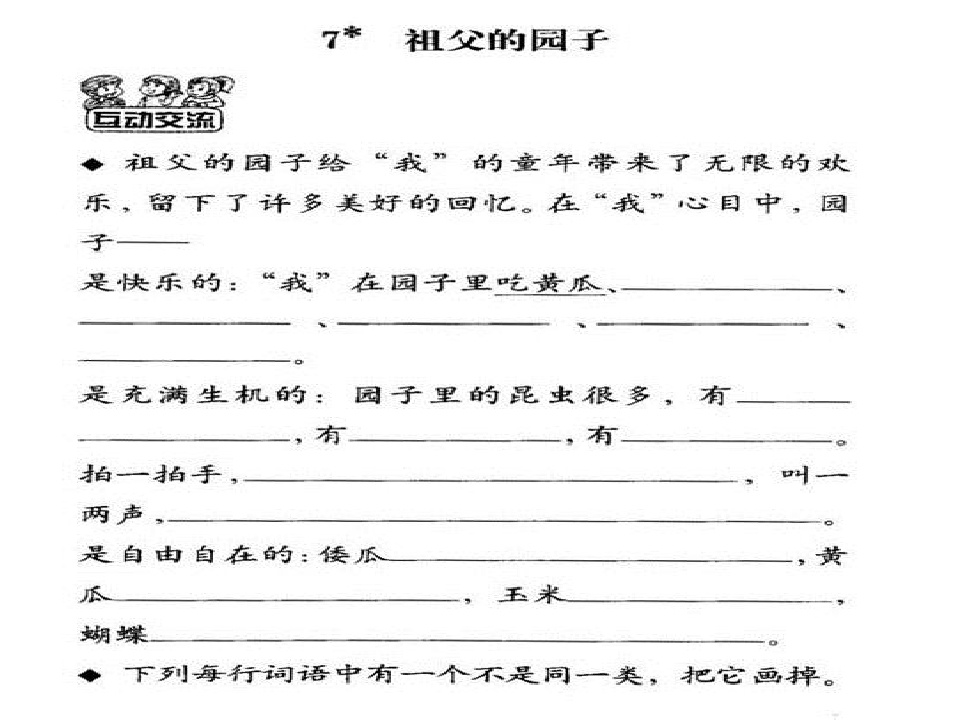 7* 祖父的园子
互动交流
◆ 祖父的园子给“我”的童年带来了无限的欢
乐，留下了许多美好的回忆。在“我”心目中，园
子——
是快乐的：“我”在园子里吃黄瓜、________、
________、________、________、
________。
是充满生机的：园子里的昆虫很多，有____
________，有________，有________。
拍一拍手，________________，叫一
两声，________________________。
是自由自在的：倭瓜________________，黄
瓜____________，玉米__________，
蝴蝶____________________。
◆ 下列每行词语中有一个不是同一类，把它画掉。